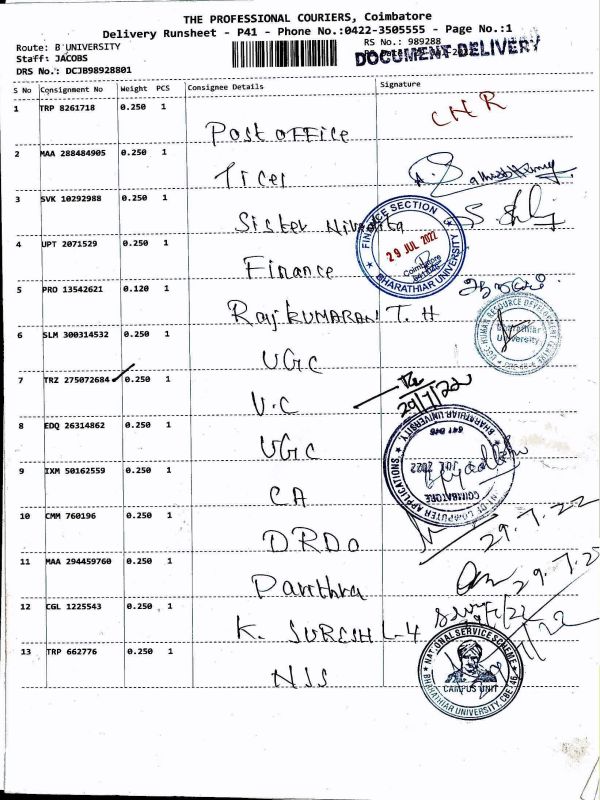 THE PROFESSIONAL COURIERS, Coimbatore
Delivery Runsheet - P41 - Phone No.:0422-3505555 - Page No.:1
Route: B UNIVERSITY
RS No.: 989288
Staff: JACOBS
DOCUMENT DELIVERY
DRS No.: DCJB98928801
S No Consignment No Weight PCS Consignee Details Signature
1 TRP 8261718 0.250 1 Post office CHR
2 MAA 288484905 0.250 1 Ticel
3 SVK 10292988 0.250 1 Sister Nivedita
4 UPT 2071529 0.250 1 Finance
FINANCE SECTION
29 JUL 2022
Coimbatore
BHARATHIAR UNIVERSITY
5 PRO 13542621 0.120 1 Rajkumaran T. H
6 SLM 300314532 0.250 1 UGC
UGC-HUMAN RESOURCE DEVELOPMENT CENTRE
Bharathiar
University
7 TRZ 275072684 0.250 1 V.C
29/7/22
8 EDQ 26314862 0.250 1 UGC
BHARATHIAR UNIVERSITY
641 046
JUL 2022
COIMBATORE
OF COMPUTER APPLICATIONS
9 IXM 50162559 0.250 1 CA
10 CMM 760196 0.250 1 DRDO 29.7.22
11 MAA 294459760 0.250 1 29.7.2
12 CGL 1225543 0.250 1 K. SURESH L-4
13 TRP 662776 0.250 1 NSS
NATIONAL SERVICE SCHEME
CAMPUS UNIT
BHARATHIAR UNIVERSITY, CBE-46